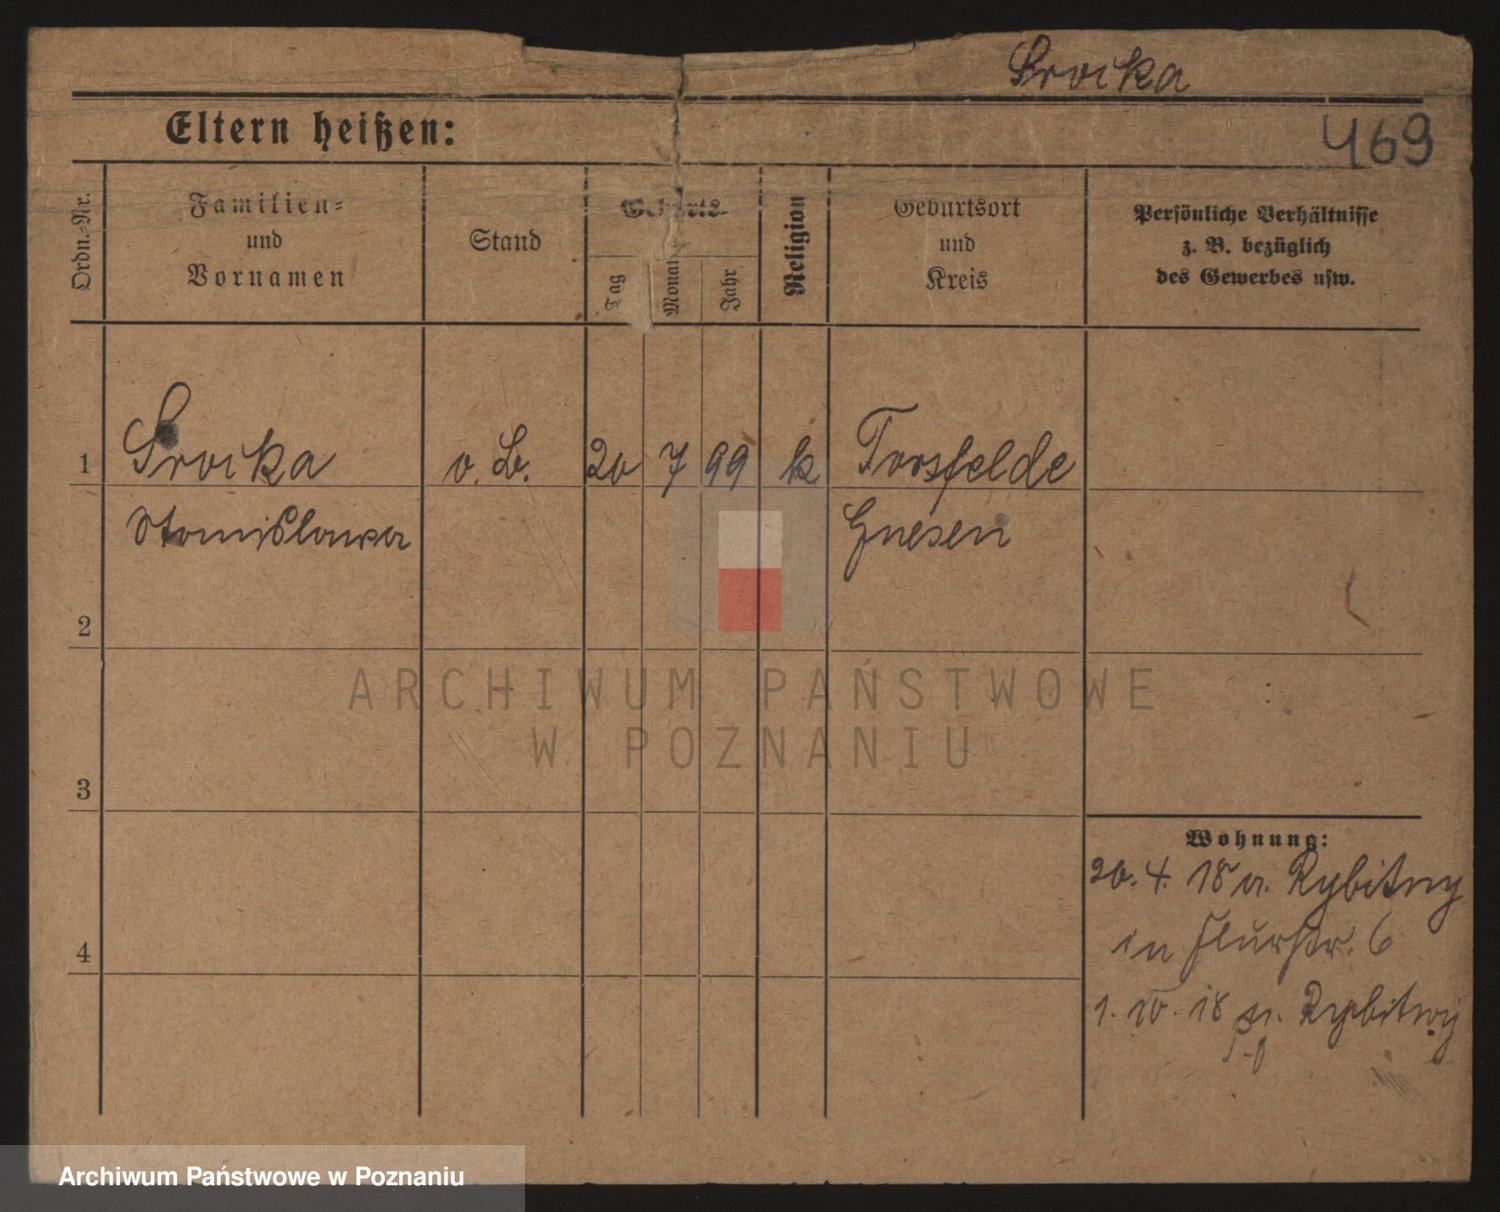 Sroika
469
Eltern heißen:
Ordn.-Nr.
Familien=
und
Vornamen
Stand
Geburts-
Tag
Monat
Jahr
Religion
Geburtsort
und
Kreis
Persönliche Verhältnisse
z. B. bezüglich
des Gewerbes usw.
1 Sroika o. B. 20 7 99 k Torsfelde
Stanislawa Gnesen
2
3
4
Wohnung:
20. 4. 18 a. Rybitwy
in Flurstr. 6
1. 10. 18 n. Rybitwy
ARCHIWUM PAŃSTWOWE
W POZNANIU
Archiwum Państwowe w Poznaniu